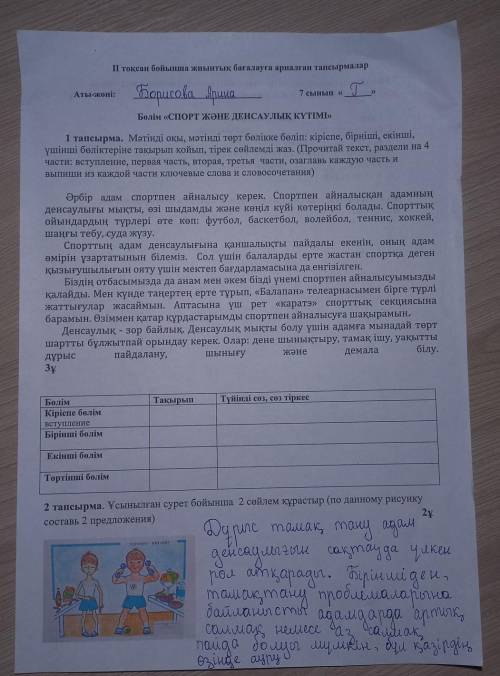 II тоқсан бойынша жиынтық бағалауға арналған тапсырмалар
Аты-жөні: Борисова Арина 7 сынып « Г »
Бөлім «СПОРТ ЖӘНЕ ДЕНСАУЛЫҚ КҮТІМІ»
1 тапсырма. Мәтінді оқы, мәтінді төрт бөлікке бөліп: кіріспе, бірніші, екінші,
үшінші бөліктеріне тақырып қойып, тірек сөйлемді жаз. (Прочитай текст, раздели на 4
части: вступление, первая часть, вторая, третья части, озаглавь каждую часть и
выпиши из каждой части ключевые слова и словосочетания)
Әрбір адам спортпен айналысу керек. Спортпен айналысқан адамның
денсаулығы мықты, өзі шыдамды және көңіл күйі көтеріңкі болады. Спорттық
ойындардың түрлері өте көп: футбол, баскетбол, волейбол, теннис, хоккей,
шаңғы тебу, суда жүзу.
Спорттың адам денсаулығына қаншалықты пайдалы екенін, оның адам
өмірін ұзартатынын білеміз. Сол үшін балаларды ерте жастан спортқа деген
қызығушылығын ояту үшін мектеп бағдарламасына да енгізілген.
Біздің отбасымызда да анам мен әкем бізді үнемі спортпен айналысуымызды
қалайды. Мен күнде таңертең ерте тұрып, «Балапан» телеарнасымен бірге түрлі
жаттығулар жасаймын. Аптасына үш рет «каратэ» спорттық секциясына
барамын. Өзіммен қатар құрдастарымды спортпен айналысуға шақырамын.
Денсаулық - зор байлық. Денсаулық мықты болу үшін адамға мынадай төрт
шартты бұлжытпай орындау керек. Олар: дене шынықтыру, тамақ ішу, уақытты
дұрыс пайдалану, шынығу және демала білу.
3ұ
Бөлім Тақырып Түйінді сөз, сөз тіркес
Кіріспе бөлім
вступление
Бірінші бөлім
Екінші бөлім
Төртінші бөлім
2 тапсырма. Ұсынылған сурет бойынша 2 сөйлем құрастыр (по данному рисунку
составь 2 предложения) 2ұ
Дұрыс тамақ тану адам
денсаулығын сақтауда үлкен
рөл атқарады. Біріншіден,
тамақтану проблемаларына
байланысты адамдарда артық
салмақ немесе аз салмақ
пайда болуы мүмкін, бұл қазірдің
өзінде ауру